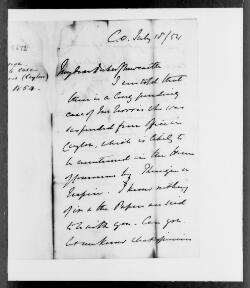 C.O. July 18/54
My dear Duke of Newcastle
I am told that
there is a long pending
case of Mr Morris who was
suspended from office in
Ceylon, which is likely to
be mentioned in the House
of Commons by
I know nothing
of it & the Papers are said
to be with you. Can you
let me know what opinion
(Ceylon)
1854.